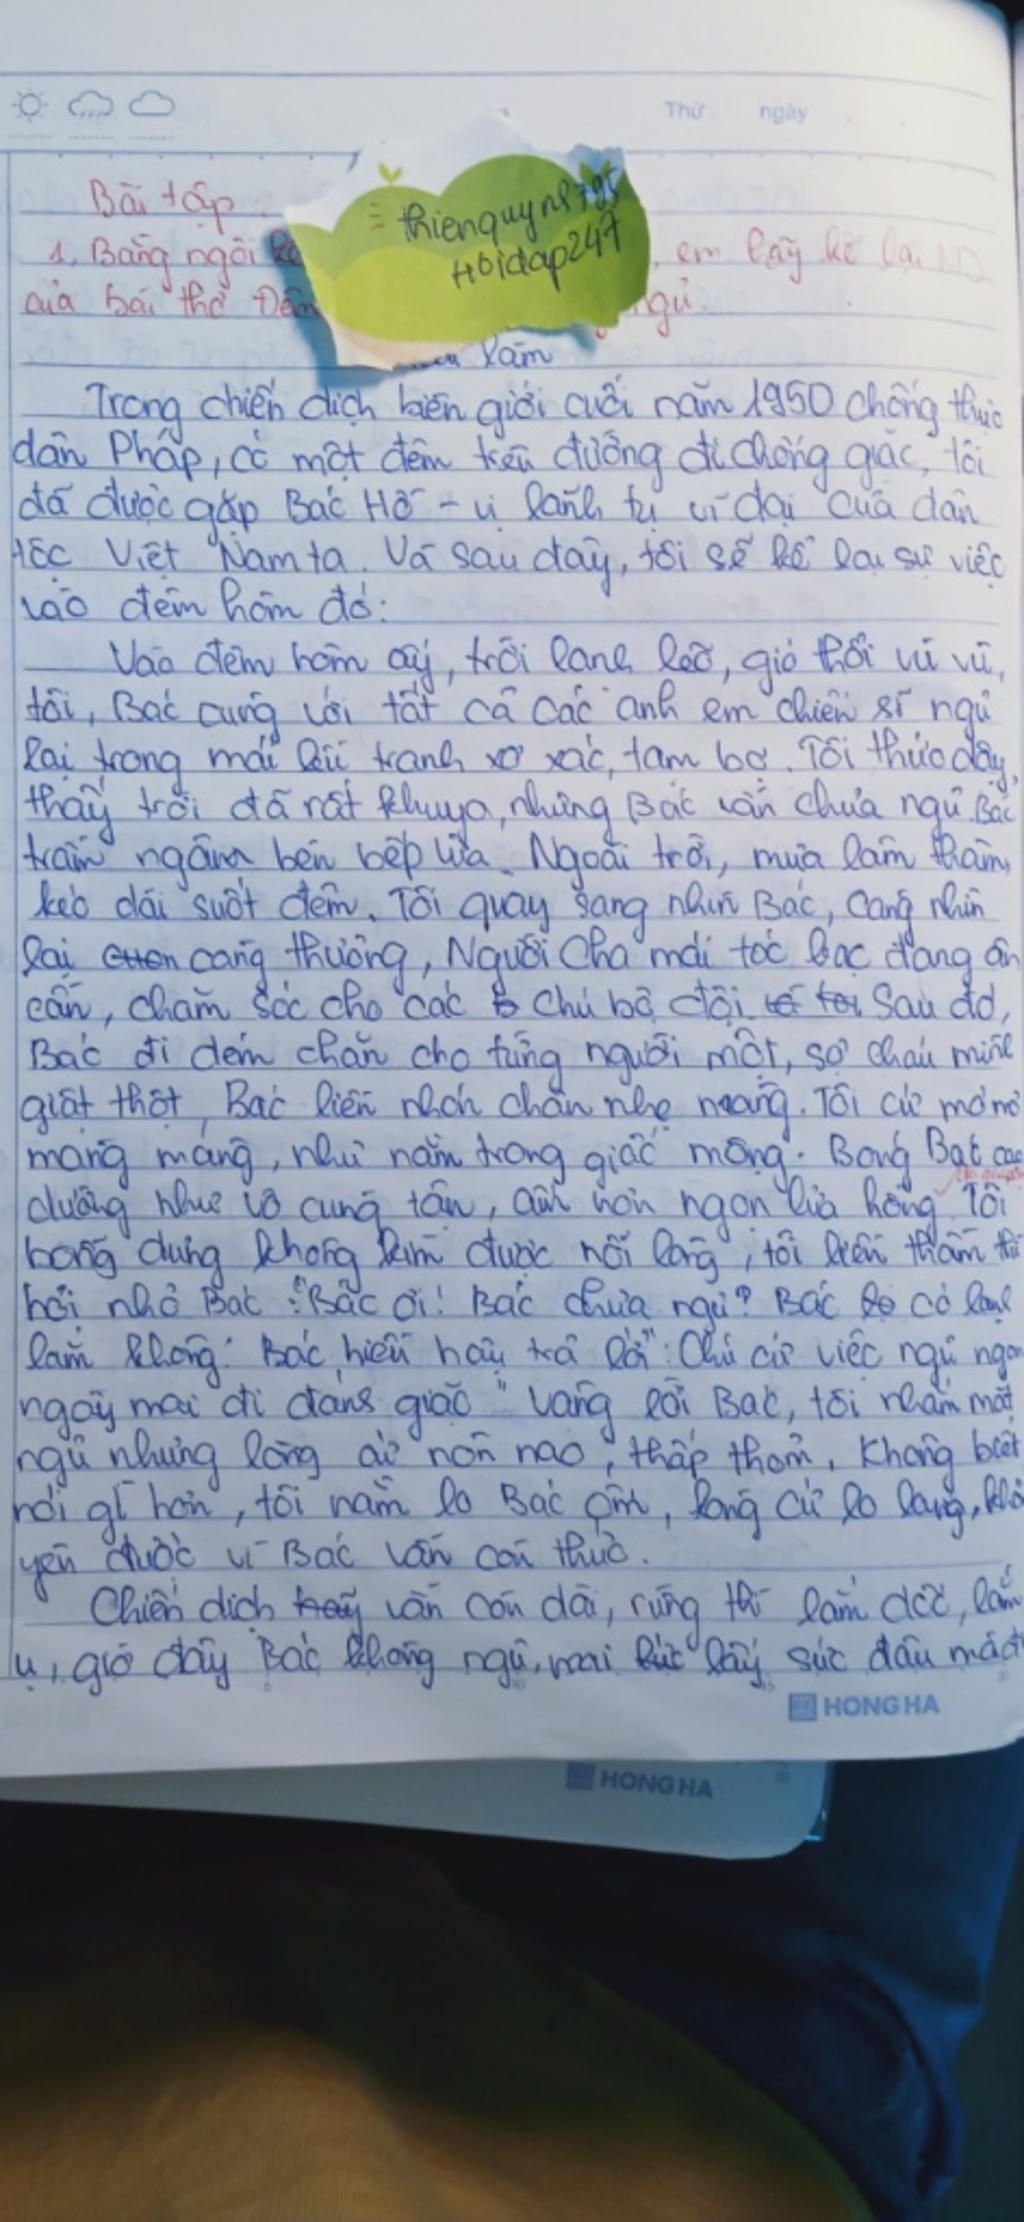 Thứ ngày
Bài tập
thienquynh795
1, Bằng ngôi kể em hãy kể lại ND
Hoidap247
của bài thơ Đêm ngủ.
làm
Trong chiến dịch biên giới cuối năm 1950 chống thực
dân Pháp, có một đêm trên đường đi chống giặc, tôi
đã được gặp Bác Hồ - vị lãnh tụ vĩ đại của dân
tộc Việt Nam ta. Và sau đây, tôi sẽ kể lại sự việc
vào đêm hôm đó:
Vào đêm hôm ấy, trời lạnh lẽo, gió thổi vù vù,
tôi, Bác cùng với tất cả các anh em chiến sĩ ngủ
lại trong mái lều tranh xơ xác, tạm bợ. Tôi thức dậy,
thấy trời đã rất khuya, nhưng Bác vẫn chưa ngủ. Bác
trầm ngâm bên bếp lửa. Ngoài trời, mưa lâm thâm,
kéo dài suốt đêm. Tôi quay sang nhìn Bác, càng nhìn
lại càng thương, Người Cha mái tóc bạc đang ân
cần, chăm sóc cho các chú bộ đội. Sau đó,
Bác đi dém chăn cho từng người một, sợ cháu mình
giật thột, Bác liền nhón chân nhẹ nhàng. Tôi cứ mơ mơ
màng màng, như nằm trong giấc mộng. Bóng Bác cao
dường như vô cùng tận, ấm hơn ngọn lửa hồng. Tôi
bỗng dưng không kìm được nỗi lòng, tôi liền thầm thì
hỏi nhỏ Bác: "Bác ơi! Bác chưa ngủ? Bác có lạnh
lắm không. Bác hiền hậu trả lời": Chú cứ việc ngủ ngon
ngày mai đi đánh giặc" Vâng lời Bác, tôi nhắm mắt
ngủ nhưng lòng cứ nôn nao, thấp thỏm, Không biết
nói gì hơn, tôi nằm lo Bác ốm, lòng cứ lo lắng,
yên được vì Bác vẫn còn thức.
Chiến dịch vẫn còn dài, rừng thì lắm dốc, lắm
ụ, giờ đây Bác không ngủ, mai lấy sức đâu mà đi
HONG HA
HONG HA